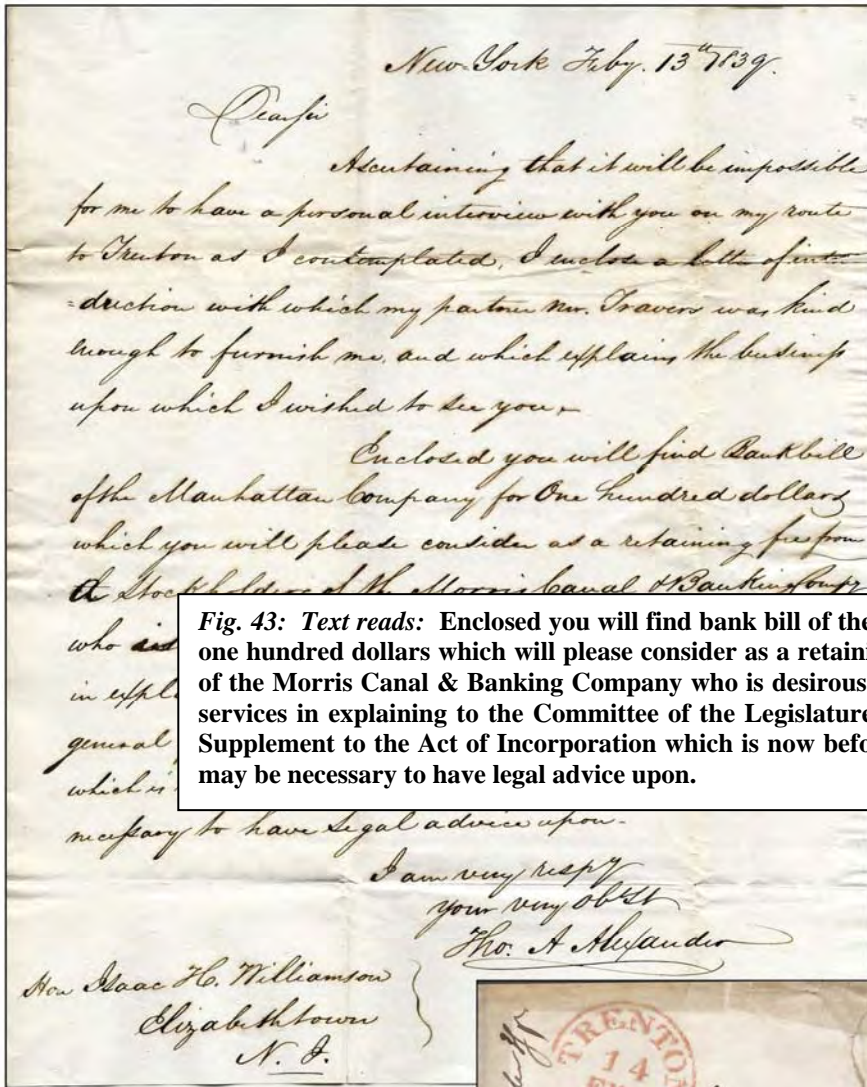 New-York Feby. 13th 1839.
Dear sir
Ascertaining that it will be impossible
for me to have a personal interview with you on my route
to Trenton as I contemplated, I enclose a letter of intro
=duction with which my partner Mr. Travers was kind
enough to furnish me, and which explains the business
upon which I wished to see you.
Enclosed you will find Bank bill
of the Manhattan Company for One hundred dollars
which you will please consider as a retaining fee from
a Stockholder of the Morris Canal & Banking Compy
who
in expl
general
which is
necessary to have legal advice upon.
I am very respy
your very obt St
Tho. A Alexander
Hon Isaac H. Williamson
Elizabethtown
N. J.
Fig. 43: Text reads: Enclosed you will find bank bill of the
one hundred dollars which will please consider as a retaini
of the Morris Canal & Banking Company who is desirous
services in explaining to the Committee of the Legislature
Supplement to the Act of Incorporation which is now befo
may be necessary to have legal advice upon.
TRENTON
14